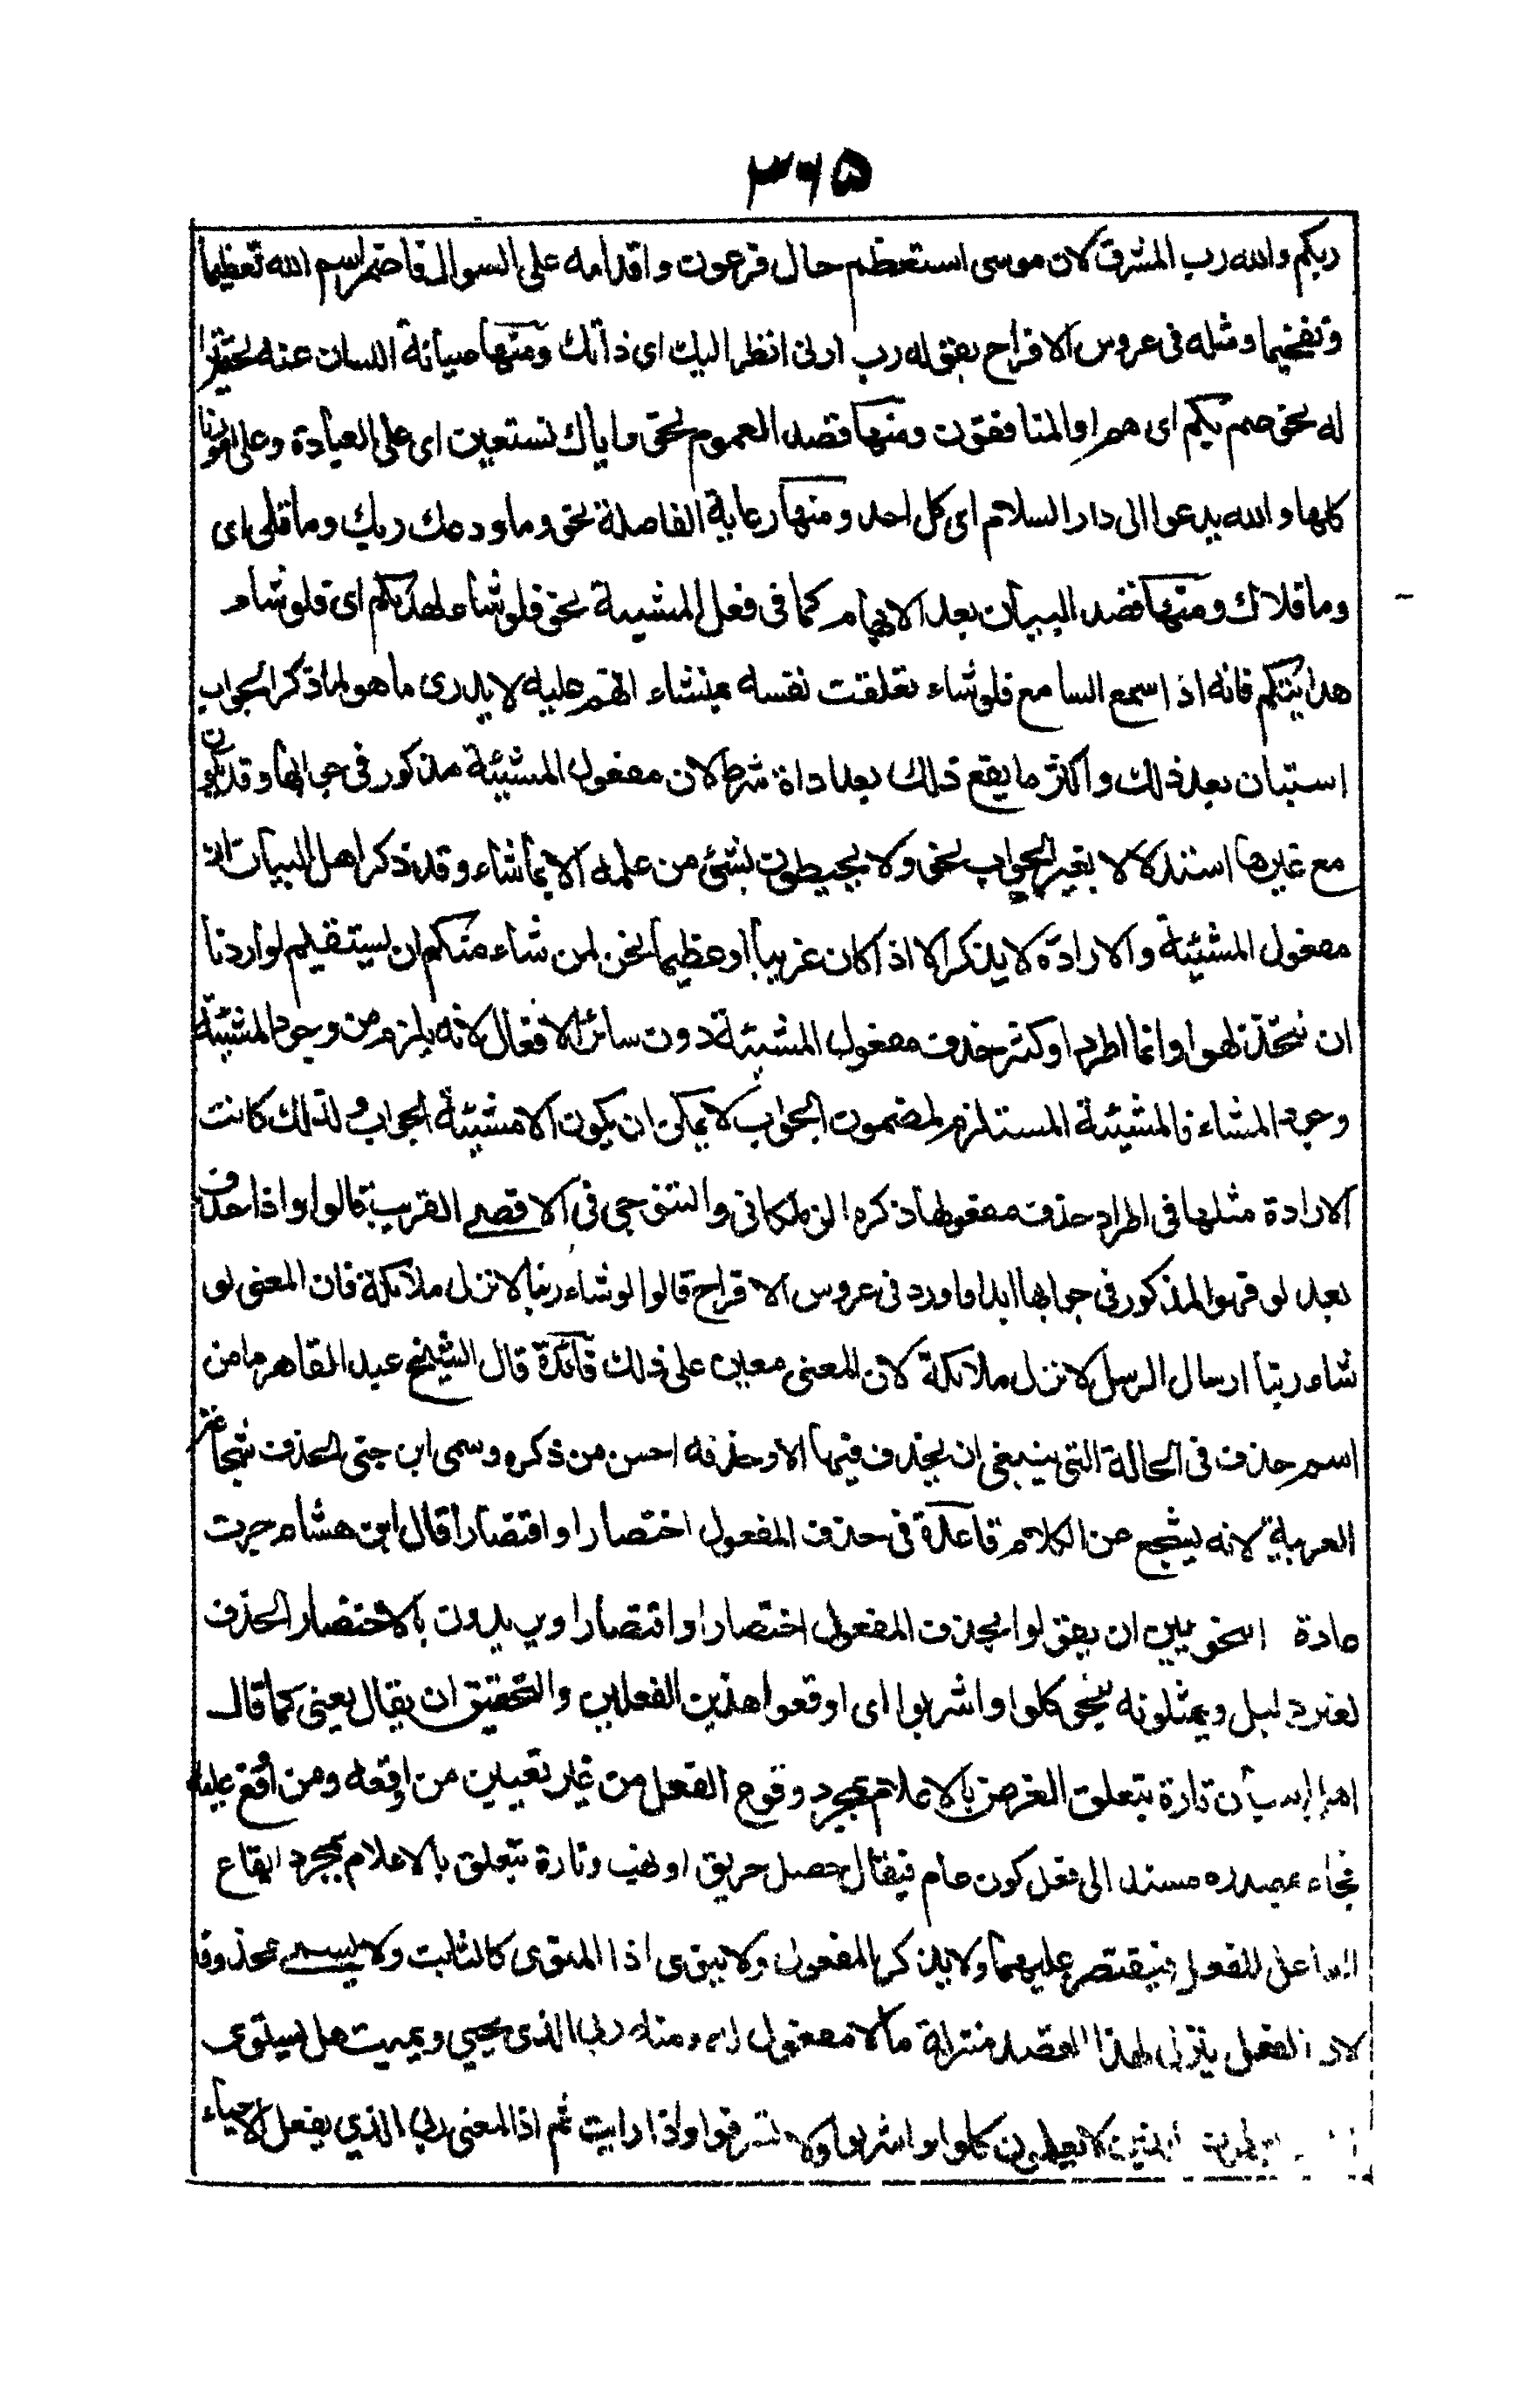 ٣٦٥
ربكم والله رب المشرق لان موسى استعظم حال فرعون واقدامه على السوال فاضمر اسم الله تعظيما
وتفخيما ومثله فى عروس الافراح بقوله رب ارنى انظر اليك اى ذاتك ومنها صيانة اللسان عنه تحقيرا
له نحو صم بكم اى هم او المنافقون ومنها قصد العموم نحو واياك نستعين اى على العبادة وعلى امورنا
كلها والله يدعوا الى دار السلام اى كل احد ومنها رعاية الفاصلة نحو وما ودعك ربك وما قلى اى
وما قلاك ومنها قصد البيان بعد الابهام كما فى فعل المشيية نحو فلو شاء لهدىكم اى فلو شاء
هدايتكم فانه اذا سمع السامع فلو شاء تعلقت نفسه بمنشاء انبهم عليه لا يدرى ما هو لما ذكر الجواب
استبان بعد ذلك واكثر ما يقع ذلك بعد اداة شرط لان مفعول المشيئة مذكور فى جوابها وقد يكون
مع غيرها استدلالا بغير الجواب نحو ولا يحيطون بشئ من علمه الا بما شاء وقد ذكر اهل البيان ان
مفعول المشيئة والارادة لا يذكر الا اذا كان غريبا او عظيما نحو لمن شاء منكم ان يستقيم لو اردنا
ان نتخذ لهوا وانما اطرد او كثر حذف مفعول المشيئة دون سائر الافعال لانه يلزم من وجود المشيئة
وجود المشاء فالمشيئة المستلزم لمضمون الجواب لا يمكن ان يكون الا مشيئة الجواب ولذلك كانت
الارادة مثلها فى اطراد حذف مفعولها ذكره الزملكانى والتنوخى فى الاقصى القريب قالوا واذا حذف
بعد لو فهو المذكور فى جوابها ابدا واورد فى عروس الافراح قالوا لو شاء ربنا لانزل ملائكة فان المعنى لو
شاء ربنا ارسال الرسل لانزل ملائكة لان المعنى معين على ذلك فائدة قال الشيخ عبد القاهر ما من
اسم حذف فى الحالة التى ينبغى ان يحذف فيها الا وحذفه احسن من ذكره وسمى ابن جنى الحذف شجاعة
العربية لانه يشجع من الكلام قاعدة فى حذف المفعول اختصارا واقتصارا قال ابن هشام جرت
عادة النحويين ان يقولوا بحذف المفعول اختصارا واقتصارا ويريدون بالاختصار الحذف
لغير دليل ويمثلونه بنحو كلوا واشربوا اى اوقعوا هذين الفعلين والتحقيق ان يقال يعنى كما قال
اهل البيان تارة يتعلق الغرض بالاعلام بمجرد وقوع الفعل من غير تعيين من اوقعه ومن اوقع عليه
فيجاء بمصدره مسندا الى فعل كون عام فيقال حصل حريق او نهب وتارة يتعلق بالاعلام بمجرد ايقاع
الفاعل للفعل فيقتصر عليهما ولا يذكر المفعول ولا ينوى اذا المنوى كالثابت ولا يسمى محذوفا
لان الفعل ينزل لهذا القصد منزلة ما لا مفعول له ومنه ربى الذى يحيى ويميت هل يستوى
الذين لا يعلمون كلوا واشربوا ولا تسرفوا واذا رايت ثم اذ المعنى ربى الذى يفعل الاحياء